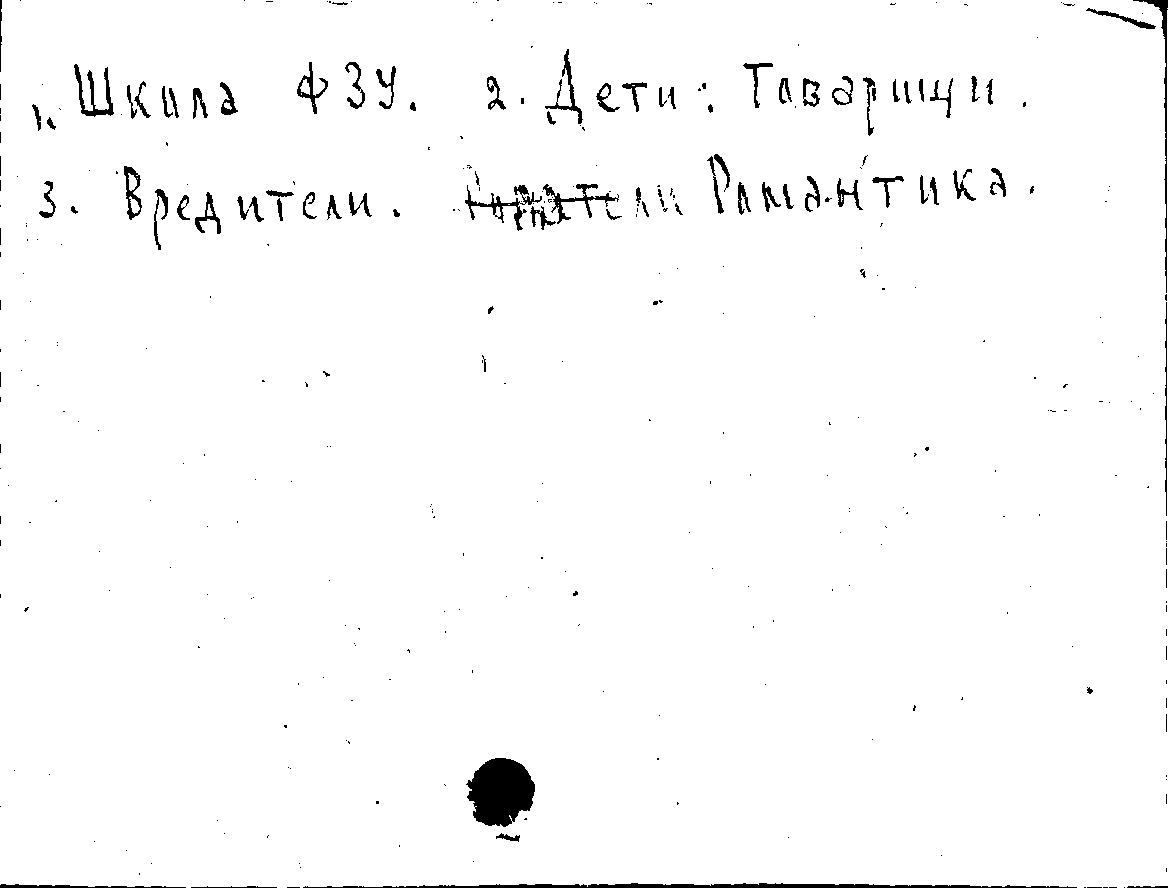 1. Школа ФЗУ. 2. Дети: Товарищи.
3. Вредители. Романтика.